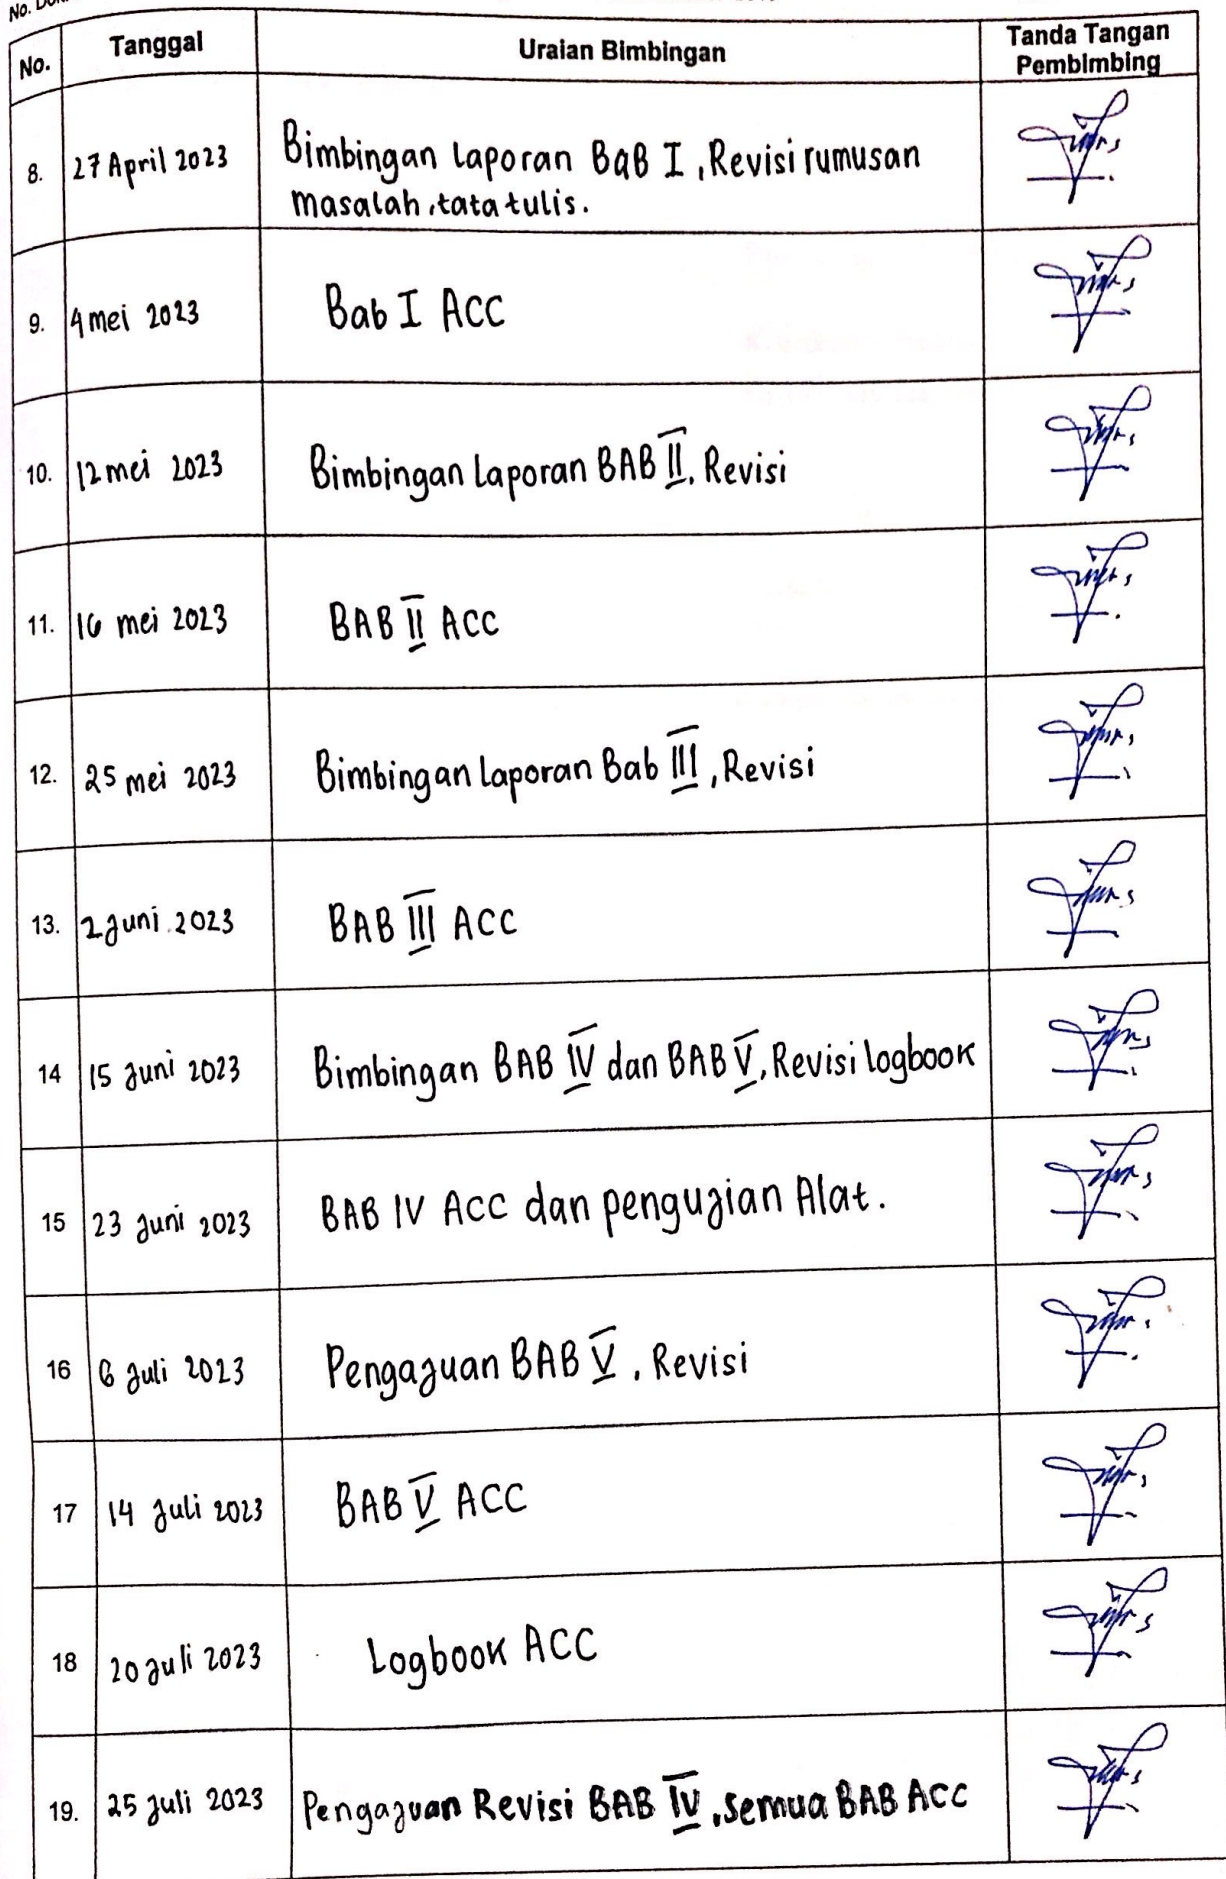 No.
No. Tanggal Uraian Bimbingan Tanda Tangan
Pembimbing
8. 27 April 2023 Bimbingan Laporan BaB I, Revisi rumusan
masalah, tata tulis.
9. 4 mei 2023 Bab I ACC
10. 12 mei 2023 Bimbingan Laporan BAB II, Revisi
11. 16 mei 2023 BAB II ACC
12. 25 mei 2023 Bimbingan Laporan Bab III, Revisi
13. 2 Juni 2023 BAB III ACC
14 15 Juni 2023 Bimbingan BAB IV dan BAB V, Revisi logbook
15 23 Juni 2023 BAB IV ACC dan pengujian Alat.
16 6 Juli 2023 Pengajuan BAB V, Revisi
17 14 Juli 2023 BAB V ACC
18 20 Juli 2023 Logbook ACC
19. 25 Juli 2023 Pengajuan Revisi BAB IV, semua BAB ACC